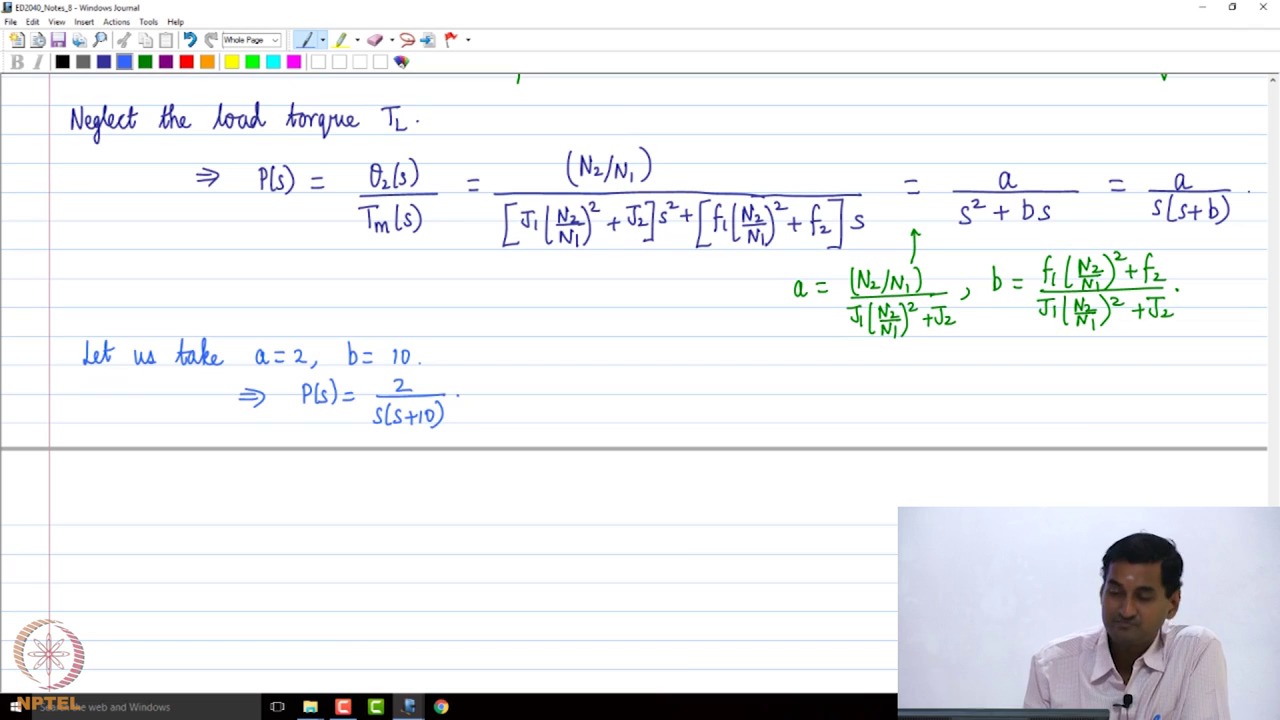 ED2040_Notes_8 - Windows Journal
File Edit View Insert Actions Tools Help
Whole Page
B I
Neglect the load torque T_L.
⇒ P(s) = θ₂(s)/T_m(s) = (N₂/N₁) / ([J₁(N₂/N₁)² + J₂]s² + [f₁(N₂/N₁)² + f₂]s) = a/(s² + bs) = a/(s(s+b)).
a = (N₂/N₁)/(J₁(N₂/N₁)² + J₂), b = (f₁(N₂/N₁)² + f₂)/(J₁(N₂/N₁)² + J₂).
Let us take a = 2, b = 10.
⇒ P(s) = 2/(s(s+10)).
NPTEL
Search the web and Windows